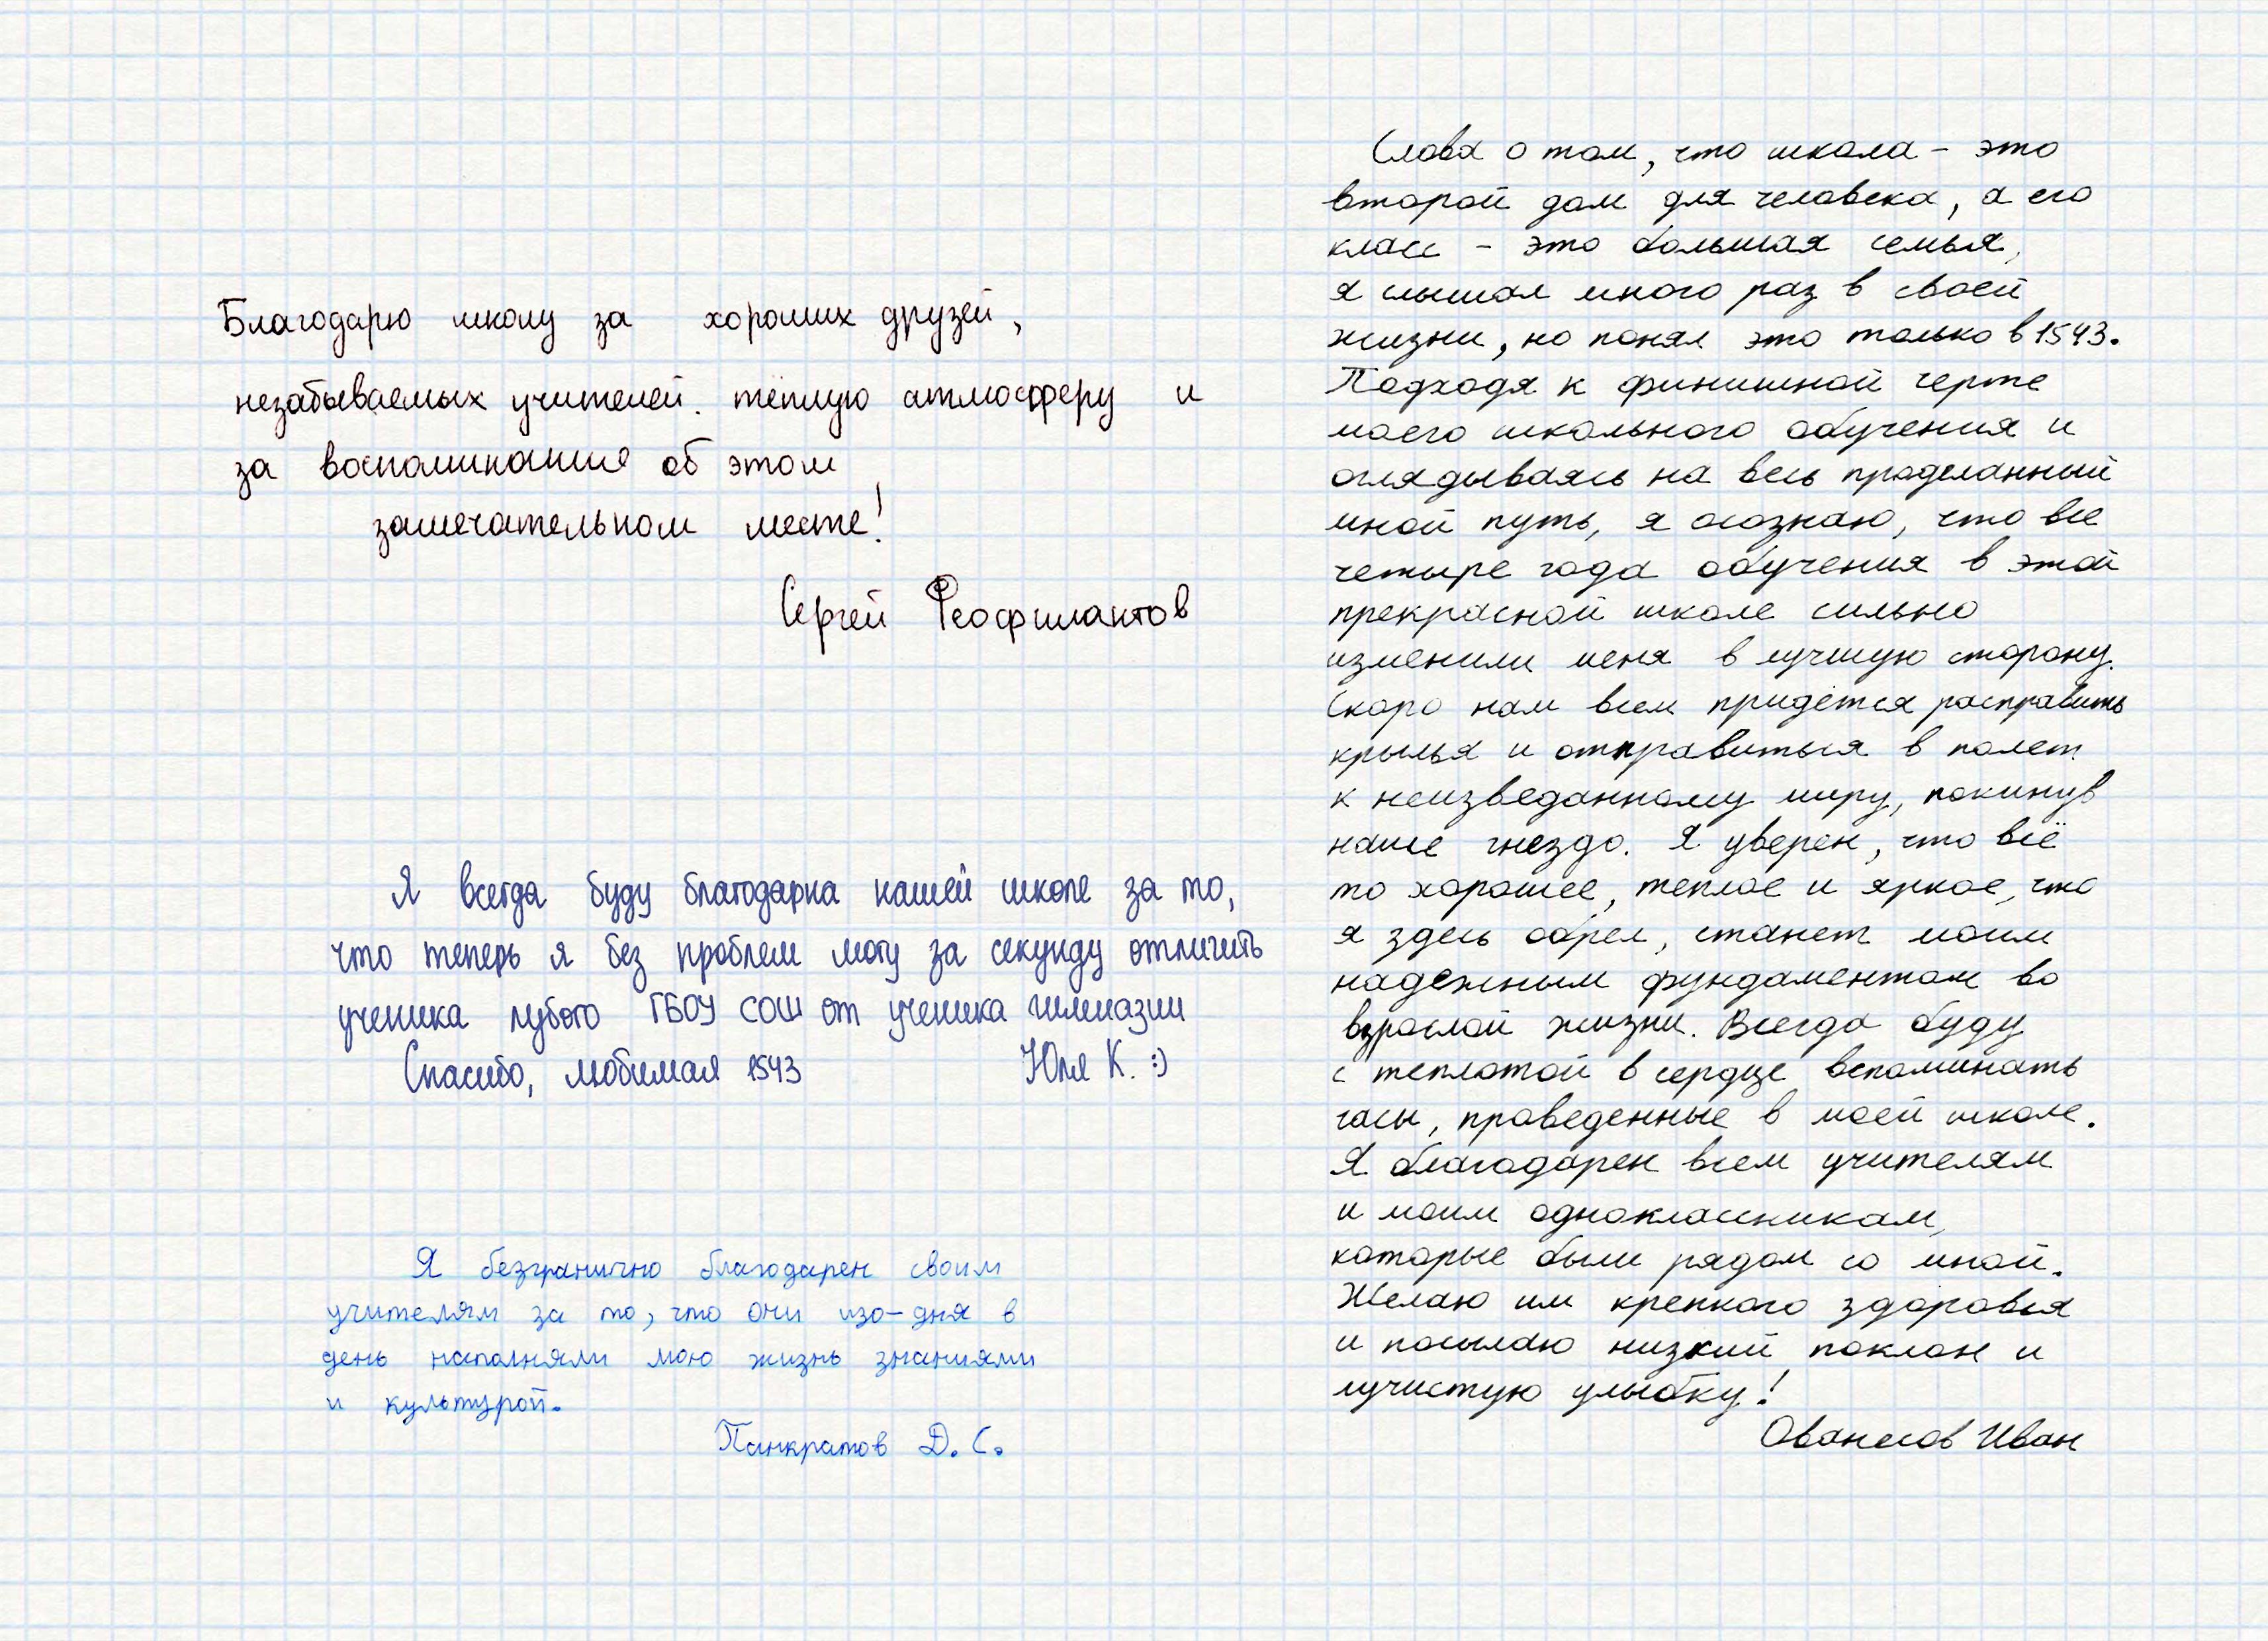 Благодарю школу за хороших друзей,
незабываемых учителей. тёплую атмосферу и
за воспоминание об этом
замечательном месте!
Сергей Феофилактов
Я всегда буду благодарна нашей школе за то,
что теперь я без проблем могу за секунду отличить
ученика лубого ГБОУ СОШ от ученика гимназии
Спасибо, любимая 1543
Юля К. :)
Я безгранично благодарен своим
учителям за то, что они изо-дня в
день наполняли мою жизнь знаниями
и культурой.
Панкратов Д. С.
Слова о том, что школа - это
второй дом для человека, а его
класс - это большая семья,
я слышал много раз в своей
жизни, но понял это только в 1543.
Подходя к финишной черте
моего школьного обучения и
оглядываясь на весь проделанный
мной путь, я осознаю, что все
четыре года обучения в этой
прекрасной школе сильно
изменили меня в лучшую сторону.
Скоро нам всем придётся расправить
крылья и отправиться в полет
к неизведанному миру, покинув
наше гнездо. Я уверен, что всё
то хорошее, теплое и яркое, что
я здесь обрел, станет моим
надежным фундаментом во
взрослой жизни. Всегда буду
с теплотой в сердце вспоминать
часы, проведенные в моей школе.
Я благодарен всем учителям
и моим одноклассникам,
которые были рядом со мной.
Желаю им крепкого здоровья
и посылаю низкий поклон и
лучистую улыбку!
Ованесов Иван